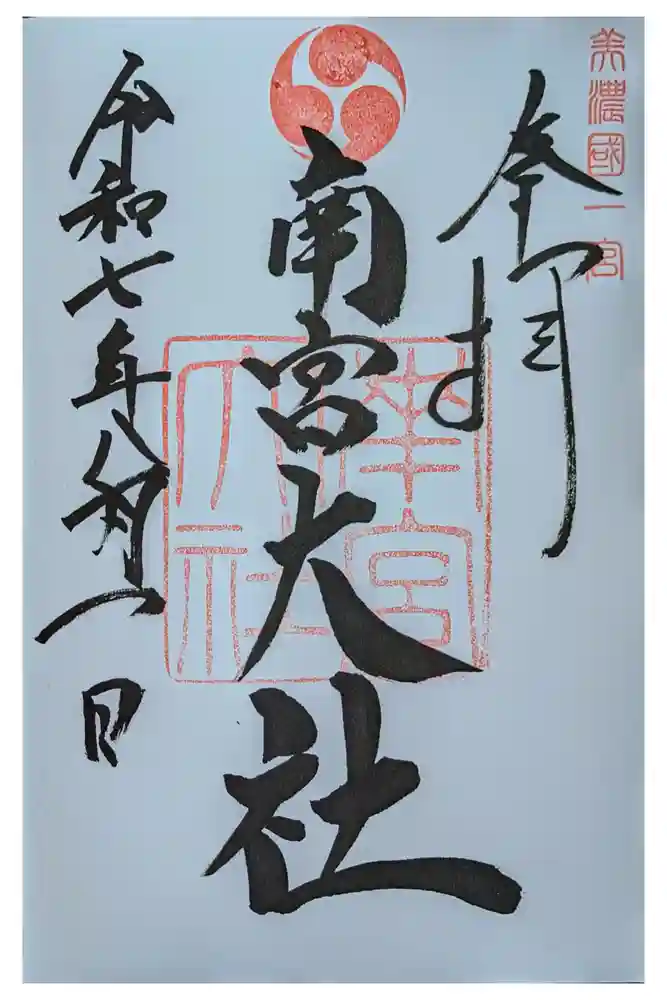 美濃國一宮
奉拝
南宮大社
南宮
大社
令和七年八月一日